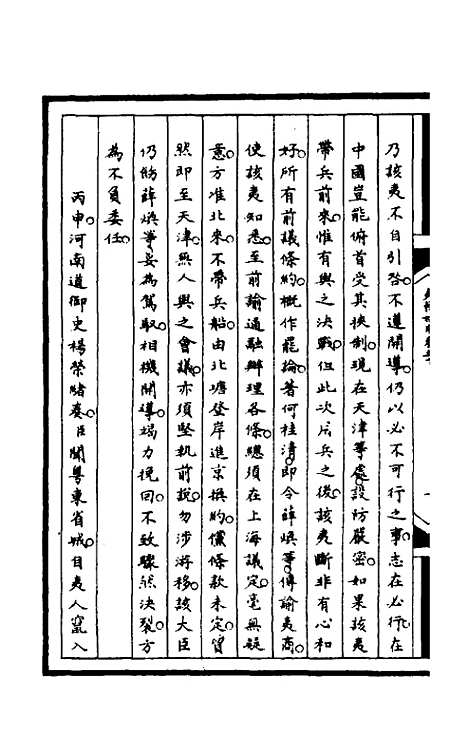 乃該夷不自引咎。不遵開導。仍以必不可行之事。志在必行。在
中國豈能俯首受其挾制。現在天津等處。設防嚴密。如果該夷
帶兵前來。惟有與之決戰。但此次兵兵之後。該夷斷非有心和
好。所有前議條約。概作罷論。著何桂清。即令薛煥等。傳諭夷商。
使該夷知悉。至前諭通融辦理各條。總須在上海議定。毫無疑
意。方准北來。不帶兵船。由北塘登岸進京換約。儻條款未定。冒
然即至天津。無人與之會議。亦須堅執前說。勿涉游移。該大臣
仍飭薛煥等。妥為駕馭。相機開導。竭力挽回。不致驟然決裂。方
為不負委任。
丙申。河南道御史楊榮緒奏。臣聞粵東省城。自夷人竄入